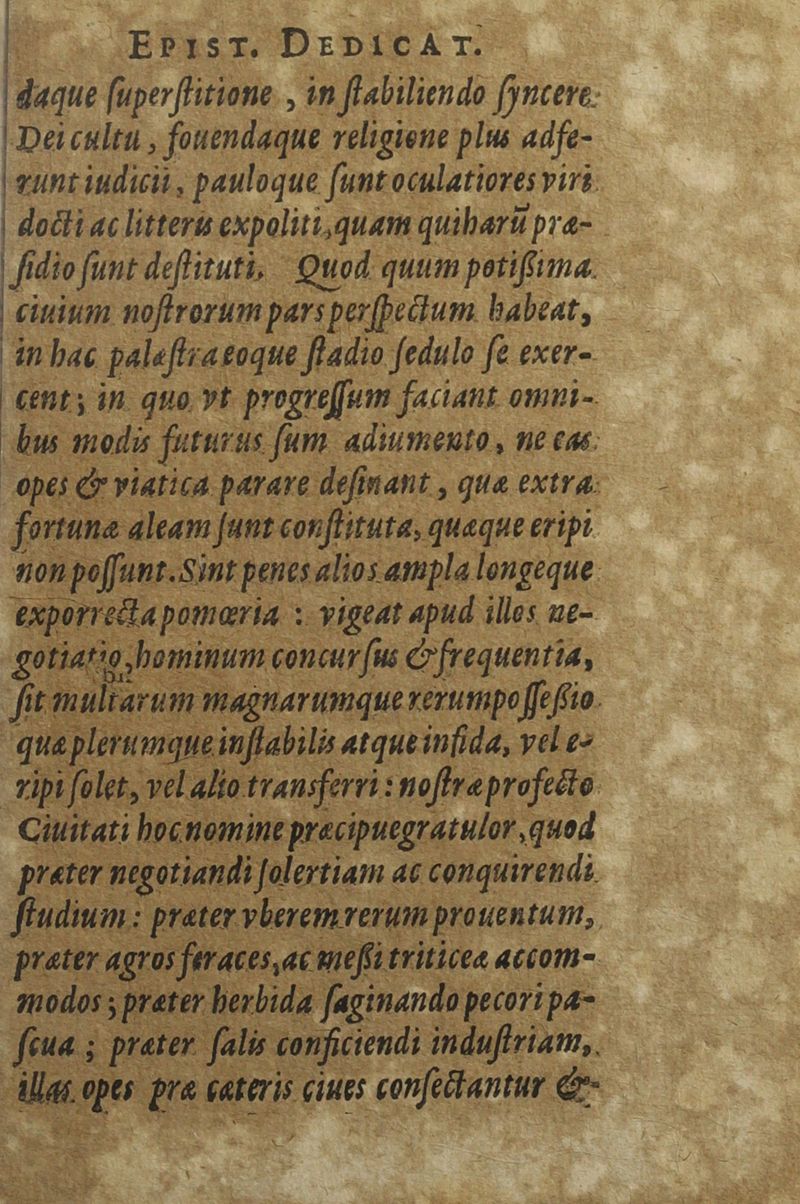 EPIST. DEDICAT.
daque ſuperſtitione , in ſtabiliendo ſyncere
Dei cultu, fouendaque religione plus adfe-
runt iudicii, pauloque ſunt oculatiores viri
docti ac litteris expoliti, quam qui harū præ-
ſidio ſunt deſtituti. Quod quum potiſsima
ciuium noſtrorum pars perſpectum habeat,
in hac palæſtra eoque ſtadio ſedulo ſe exer-
cent; in quo vt progreſſum faciant omni-
bus modis futurus ſum adiumento, ne eas
opes & viatica parare deſinant, quæ extra
fortunæ aleam ſunt conſtituta, quæque eripi
non poſſunt. Sint penes alios ampla longeque
exporrecta pomœria : vigeat apud illos ne-
gotiatio, hominum concurſus & frequentia,
ſit multarum magnarumque rerum poſſeſsio
quæ plerumque inſtabilis atque infida, vel e-
ripi ſolet, vel alio transferri : noſtræ profecto
Ciuitati hoc nomine præcipue gratulor, quod
præter negotiandi ſolertiam ac conquirendi
ſtudium : præter vberem rerum prouentum,
præter agros feraces, ac meſsi triticeæ accom-
modos ; præter herbida ſaginando pecori pa-
ſcua ; præter ſalis conficiendi induſtriam,
illas opes præ cæteris ciues conſectantur &